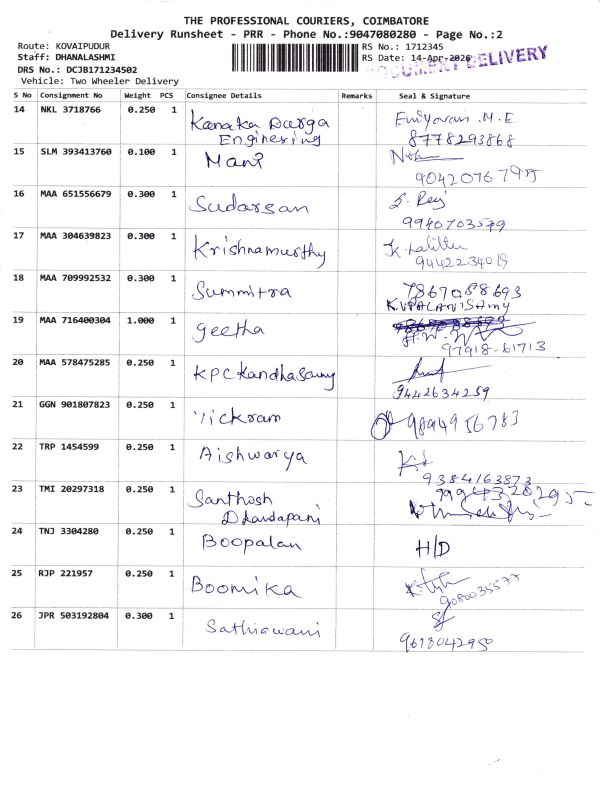 THE PROFESSIONAL COURIERS, COIMBATORE
Delivery Runsheet - PRR - Phone No.:9047080280 - Page No.:2
Route: KOVAIPUDUR
Staff: DHANALASHMI
DRS No.: DCJB171234502
Vehicle: Two Wheeler Delivery
RS No.: 1712345
RS Date: 14-Apr-2026
DOCUMENT DELIVERY
S No Consignment No Weight PCS Consignee Details Remarks Seal & Signature
14 NKL 3718766 0.250 1 Kanaka Durga Eniyavan.M.E
Enginering 8778293868
15 SLM 393413760 0.100 1 Mani
9042076795
16 MAA 651556679 0.300 1 Sudarsan
9940703579
17 MAA 304639823 0.300 1 Krishnamurthy K. Lalitha
9442234019
18 MAA 709992532 0.300 1 Summitra 7867088693
K.V.PALANISAMY
19 MAA 716400304 1.000 1 Geetha
97918-61713
20 MAA 578475285 0.250 1 KPC Kandhasamy
9442634259
21 GGN 901807823 0.250 1 Vickram 9894956783
22 TRP 1454599 0.250 1 Aishwarya
9384163873
23 TMI 20297318 0.250 1 Santhosh
Dhandapani
24 TNJ 3304280 0.250 1 Boopalan H/D
25 RJP 221957 0.250 1 Boomika
9080035577
26 JPR 503192804 0.300 1 Sathiawani
9618042950